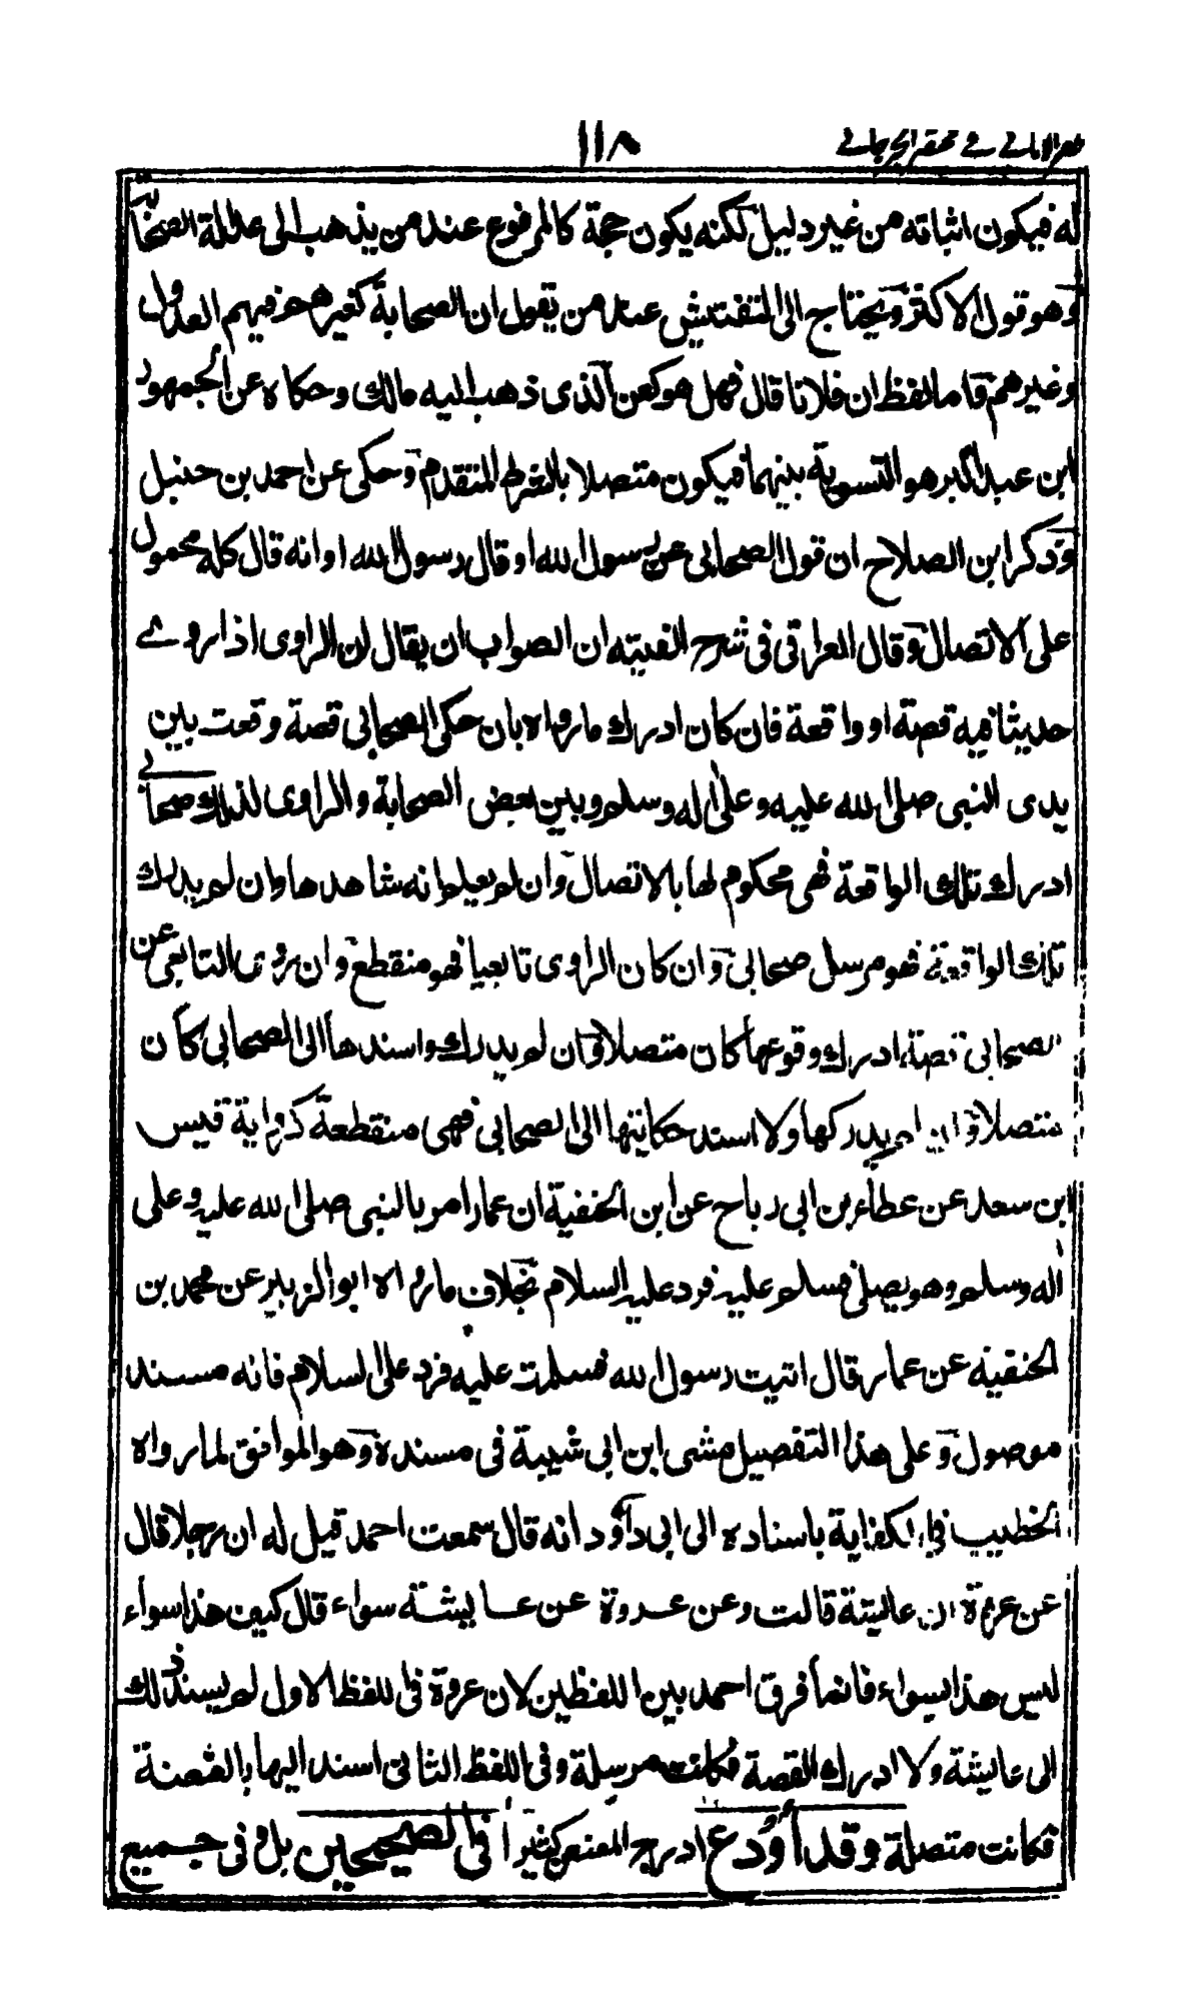 ظفر الامانى فے مختصر الجرجانے
١١٨
له فيكون اثباته من غير دليل لكنه يكون حجة كالمرفوع عند من يذهب الى عدالة الصحابة
وهو قول الاكثر ويحتاج الى التفتيش عند من يقول ان الصحابة كغيرهم فيهم العدول
وغيرهم فاما لفظ ان فلانا قال فهل هو كعن الذى ذهب اليه مالك وحكاه عن الجمهور
ابن عبد البر هو التسوية بينهما فيكون متصلا بالشرط المتقدم وحكى عن احمد بن حنبل
وذكر ابن الصلاح ان قول الصحابى عن رسول الله او قال رسول الله او انه قال كله محمول
على الاتصال وقال العراقى فى شرح الفيته ان الصواب ان يقال ان الراوى اذا روے
حديثا فيه قصة او واقعة فان كان ادرك ما رواه بان حكى الصحابى قصة وقعت بين
يدى النبى صلى الله عليه وعلى اله وسلم وبين بعض الصحابة والراوى لذلك صحابى
ادرك تلك الواقعة فهى محكوم لها بالاتصال وان لم يعلم انه شاهدها وان لم يدرك
تلك الواقعة فهو مرسل صحابى وان كان الراوى تابعيا فهو منقطع وان روى التابعى عن
الصحابى قصة ادرك وقوعها كان متصلا وان لم يدرك واسندها الى الصحابى كان
متصلا وان لم يدركها ولا اسند حكايتها الى الصحابى فهى منقطعة كرواية قيس
ابن سعد عن عطاء بن ابى رباح عن ابن الحنفية ان عمارا مر بالنبى صلى الله عليه وعلى
اله وسلم وهو يصلى فسلم عليه فرد عليه السلام بخلاف ما رواه ابو الزبير عن محمد بن
الحنفية عن عمار قال اتيت رسول الله فسلمت عليه فرد على السلام فانه مسند
موصول وعلى هذا التفصيل مشى ابن ابى شيبة فى مسنده وهو الموافق لما رواه
الخطيب فى الكفاية باسناده الى ابى داؤد انه قال سمعت احمد قيل له ان رجلا قال
عن عروة ان عايشة قالت وعن عروة عن عايشة سواء قال كيف هذا سواء
ليس هذا بسواء فانما فرق احمد بين اللفظين لان عروة فى اللفظ الاول لم يسند ذلك
الى عايشة ولا ادرك القصة فكانت مرسلة وفى اللفظ الثانى اسند اليها بالعنعنة
فكانت متصلة وقد أودع ادرج المعنعن كثيرا فى الصحيحين بل وفى جميع